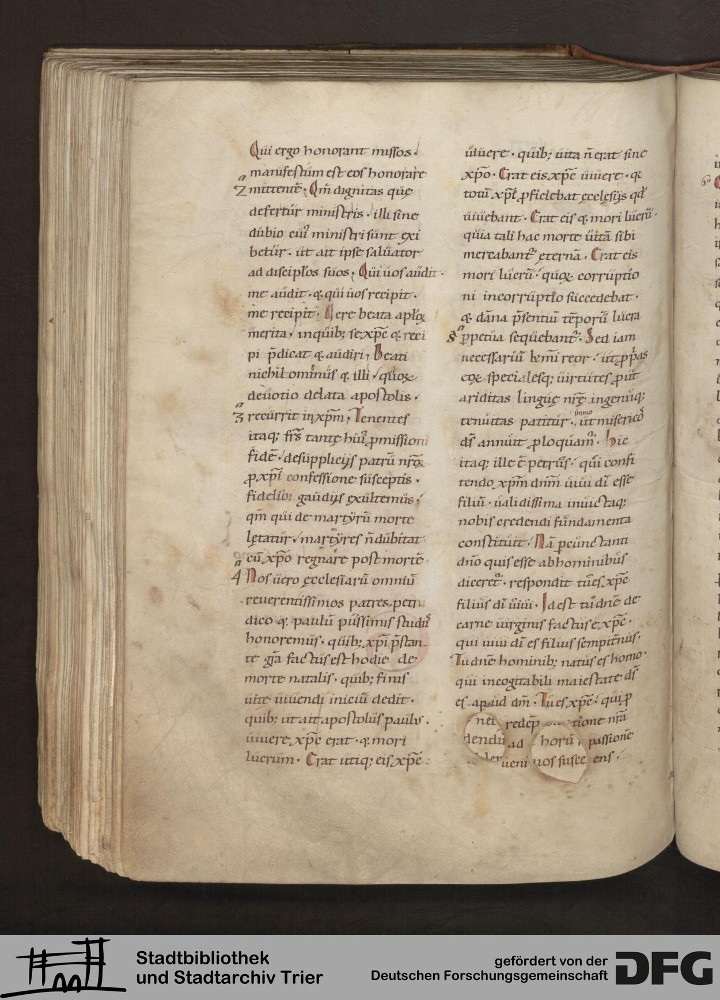 Qui ergo honorant missos ·
manifestum est eos honorare
2 mittentē · Qm̄ dignitas que
defertur ministris · illi sine
dubio cui ministri sunt exi
betur · ut ait ipse saluator
ad disciplos suos · Qui uos audit ·
me audit · & qui uos recipit ·
me recipit · Uere beata
merita · inquib; se xp̄c & reci
pi p̄dicat & audiri · Beati
nichilominus & illi quoꝝ
deuotio delata apostolis ·
3 recurrit inxp̄m · Tenentes
itaq; frs̄ tante hui' ꝓmissioni
fidē · desuppliciis patrū nr̄oꝝ
ꝓxp̄i confessione susceptis ·
fidelib; gaudiis exultemus ·
qm̄ qui de martyrū morte
letatur · martyres n̄ dubitat
cū xp̄o regnare post mortē
4 Nos uero ecclesiarū omniū
reuerentissimos patres petrū
dico & paulū piissimis studiis
honoremus · quib; xp̄i p̄stan
te gr̄a factus est hodie de
morte natalis · quib; finis
uite uiuendi iniciū dedit ·
quib; ut ait apostolus paulus ·
uiuere xp̄c erat · & mori
lucrum · Erat utiq; eis xp̄c
uiuere · quib; uita n̄ erat sine
xp̄o · Erat eis xp̄c uiuere · q
totū xp̄i ꝓficiebat ecclesiis qd̄
uiuebant · Erat eis & mori lucrū ·
quia tali hac morte uitā sibi
mercabant̄ eternā · Erat eis
mori lucrū · quoꝝ corruptio
ni incorruptio succedebat ·
& dāna p̄sentiū tēporū lucra
5 ꝑpetua sequebant̄ · Sed iam
necessariū reor · ut
speciales uirtutes put
ariditas lingue nr̄e ingeniiq;
tenuitas patitur · immo ut misericors
ds̄ annuit ꝓloquam̄ · Hic
itaq; ille ē petrus · qui confi
tendo xp̄m dn̄m uiui dī esse
filiū · ualidissima inuictaq;
nobis credendi fundamenta
constituit · Nā ꝑcunctanti
dn̄o quis esse ab hominibus
diceret̄ · respondit tu es xp̄c
filius dī uiui · Id est tu dn̄e de
carne uirginis factus e xp̄c ·
qui uiui dī es filius sempitn̄us ·
Tu dn̄e hominib; natus es homo ·
qui incogitabili maiestate ds̄
es apud dm̄ · Tu es xp̄c · qui ꝓ
redēp tione nr̄a
ad horū passionē
ueni uos susce ens ·
Stadtbibliothek
und Stadtarchiv Trier
gefördert von der
Deutschen Forschungsgemeinschaft
DFG